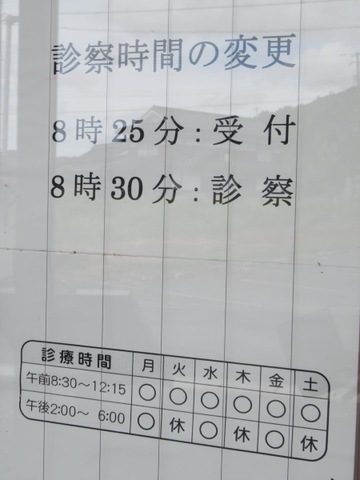 診察時間の変更
8時25分:受付
8時30分:診察
診療時間 月 火 水 木 金 土
午前8:30～12:15 ○ ○ ○ ○ ○ ○
午後2:00～ 6:00 ○ 休 ○ 休 ○ 休